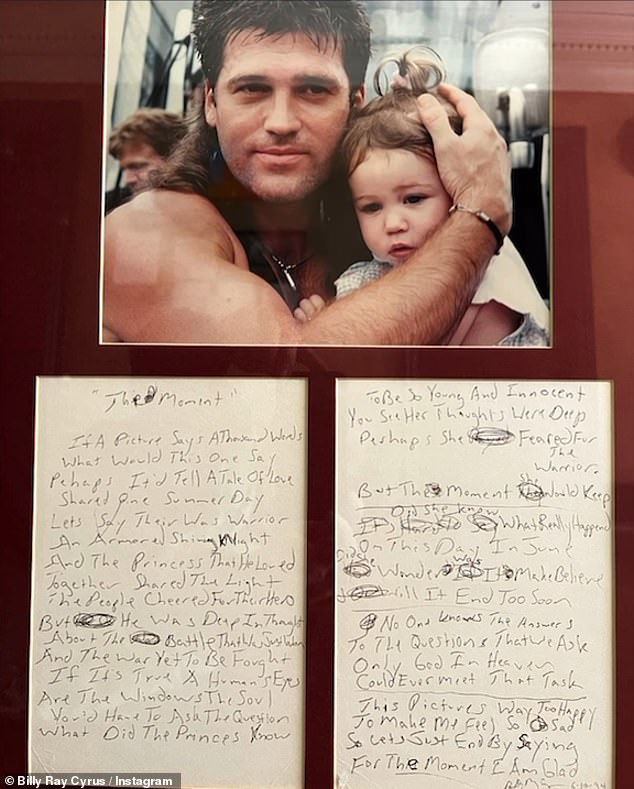 "The Moment"
If A Picture Says A Thousand Words
What Would This One Say
Pehaps It'd Tell A Tale Of Love
Shared One Summer Day
Lets Say Their Was Warrior
An Armored Shining Knight
And The Princess That He Loved
Together Shared The Light
The People Cheered For Their Hero
But He Was Deep In Thought
About The Battle That Was Just Won
And The War Yet To Be Fought
If It's True A Human's Eyes
Are The Windows The Soul
You'd Have To Ask The Question
What Did The Princes Know
To Be So Young And Innocent
You See Her Thoughts Were Deep
Perhaps She Feared For
The
Warrior.
But The Moment She Would Keep
Did She Know
What Really Happend
On This Day In June
Did She Wonder Was It Make Believe
Will It End Too Soon
No One Knows The Answers
To The Questions That We Ask
Only God In Heaven
Could Ever Meet That Task
This Pictures Way Too Happy
To Make Me Feel So Sad
So Lets Just End By Saying
For The Moment I Am Glad
6-10-94
© Billy Ray Cyrus / Instagram